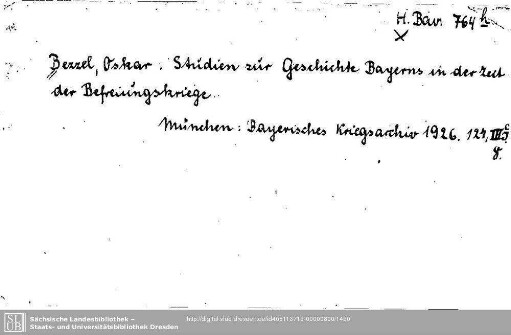 H. Bav. 764 h
Bezzel, Oskar. Studien zur Geschichte Bayerns in der Zeit
der Befreiungskriege.
München: Bayerisches Kriegsarchiv 1926. 124, III S.
8.
SLUB
Sächsische Landesbibliothek –
Staats- und Universitätsbibliothek Dresden